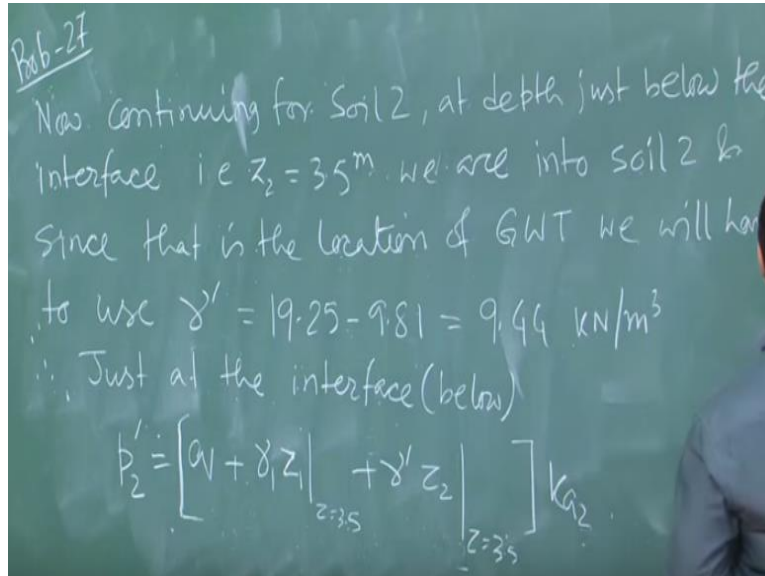 Prob-27
Now continuing for Soil 2, at depth just below the
interface i e z₂ = 3.5ᵐ we are into soil 2 &
since that is the location of GWT we will ha
to use γ' = 19.25 - 9.81 = 9.44 KN/m³
∴ Just at the interface (below)
p₂' = [q + γ₁z₁|z=3.5 + γ' z₂|z=3.5] ka₂